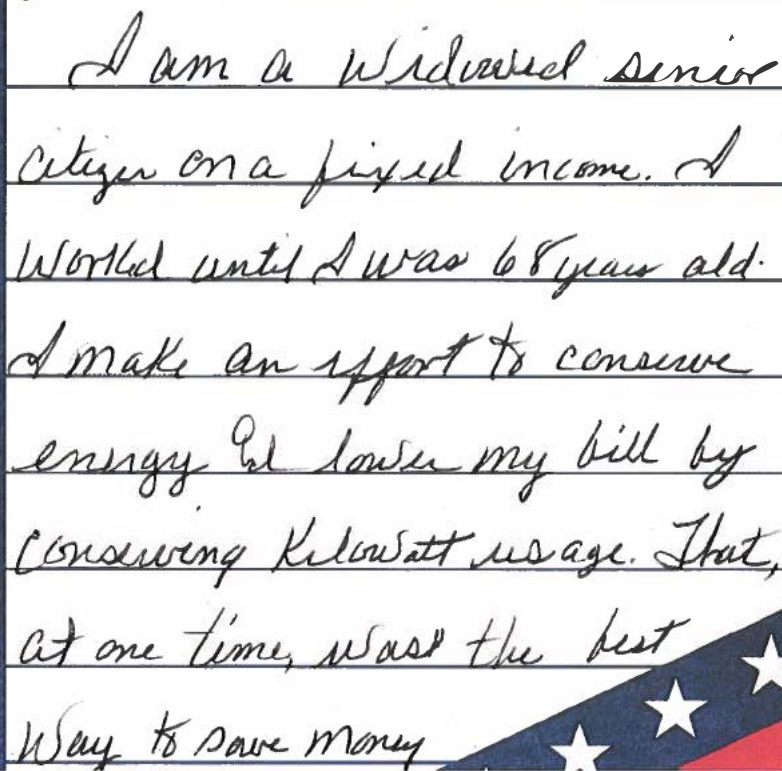 I am a widowed senior
citizen on a fixed income. I
worked until I was 68 years old.
I make an effort to conserve
energy & lower my bill by
conserving Kilowatt usage. That,
at one time, was the best
way to save money